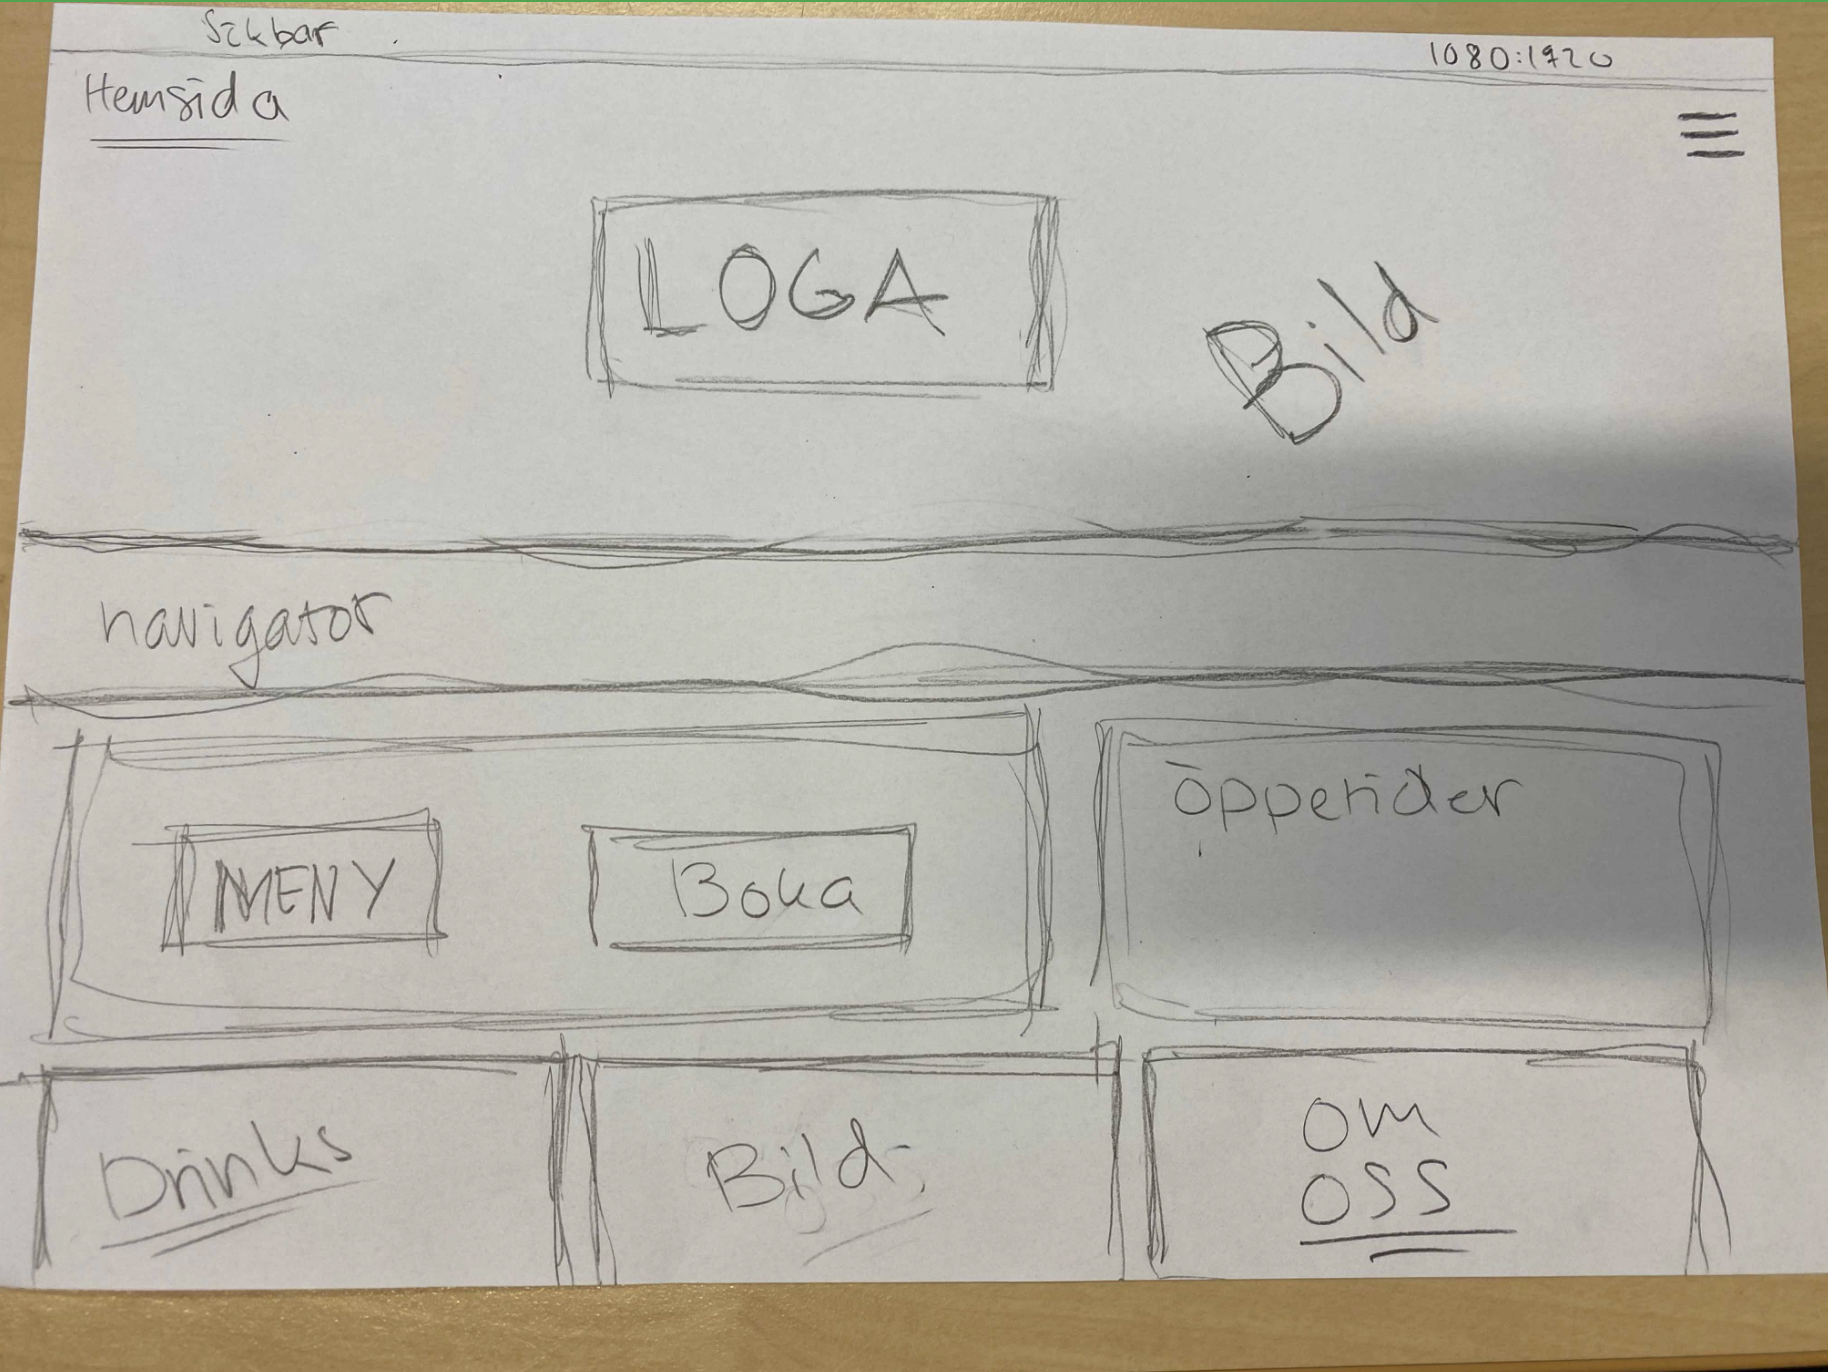 Sökbar
1080:1920
Hemsida
LOGA
Bild
navigator
MENY
Boka
öppetider
Drinks
Bild
OM
OSS